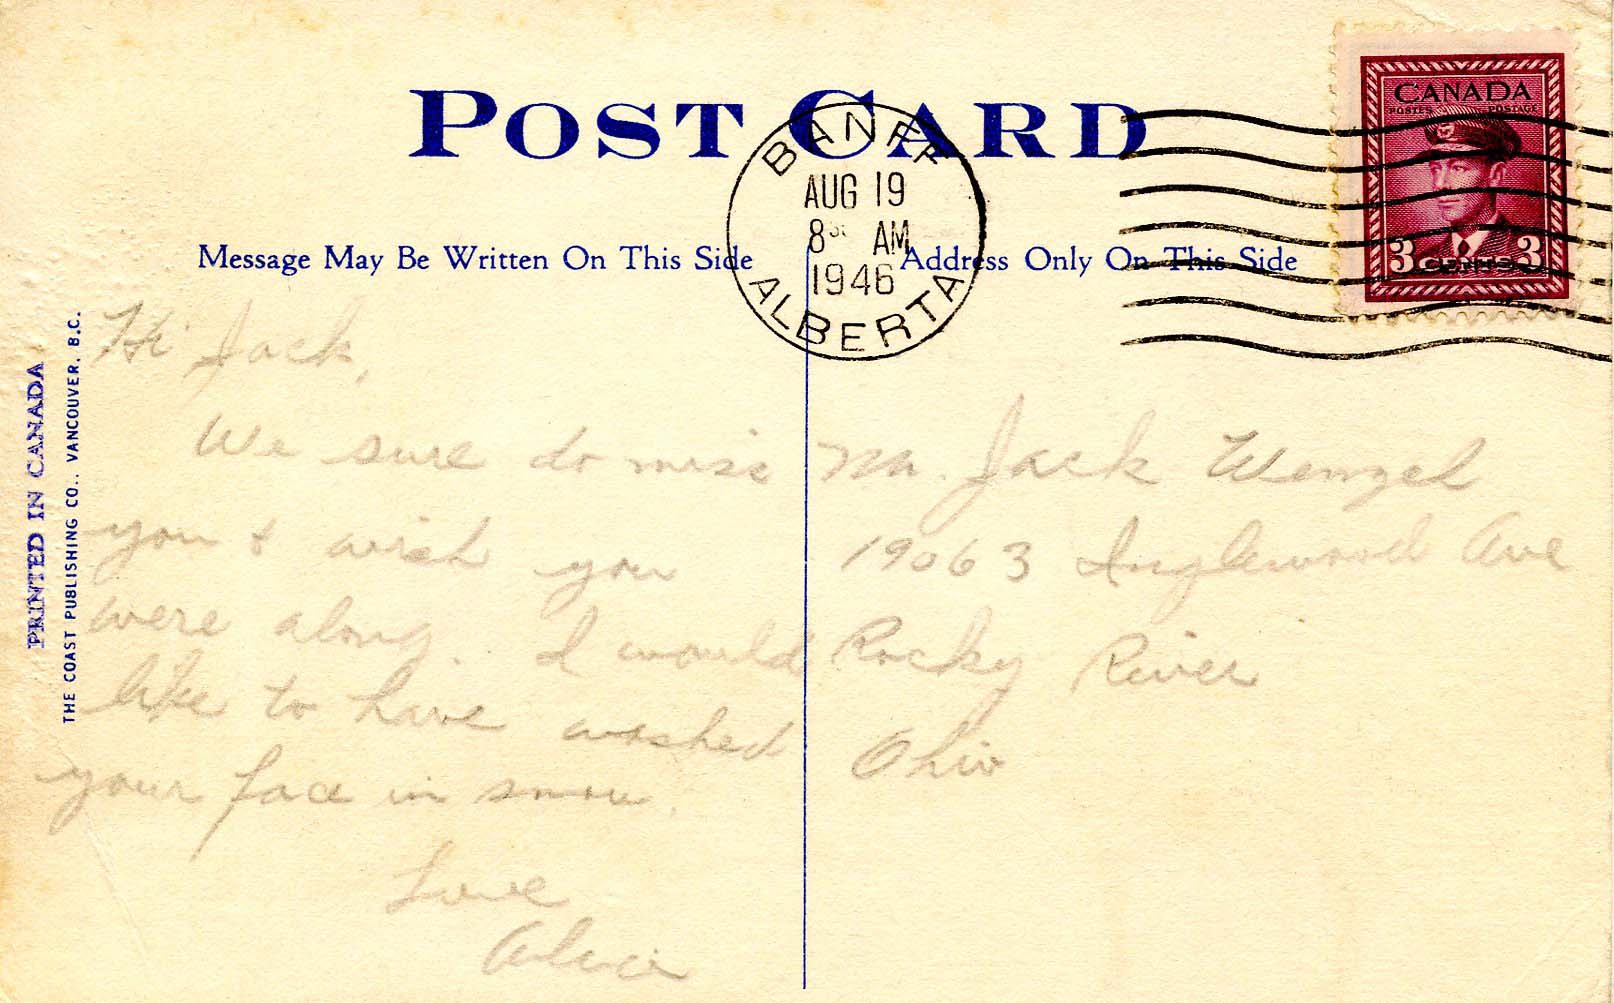 POST CARD
BANFF
AUG 19
8 AM
1946
ALBERTA
CANADA
POSTES POSTAGE
3 CENTS 3
Message May Be Written On This Side
Address Only On This Side
PRINTED IN CANADA
THE COAST PUBLISHING CO., VANCOUVER, B.C.
Hi Jack,
We sure do miss
you & wish you
were along. I would
like to have washed
your face in snow.
Love
Mr. Jack Wenzel
19063 Inglewood Ave
Rocky River
Ohio